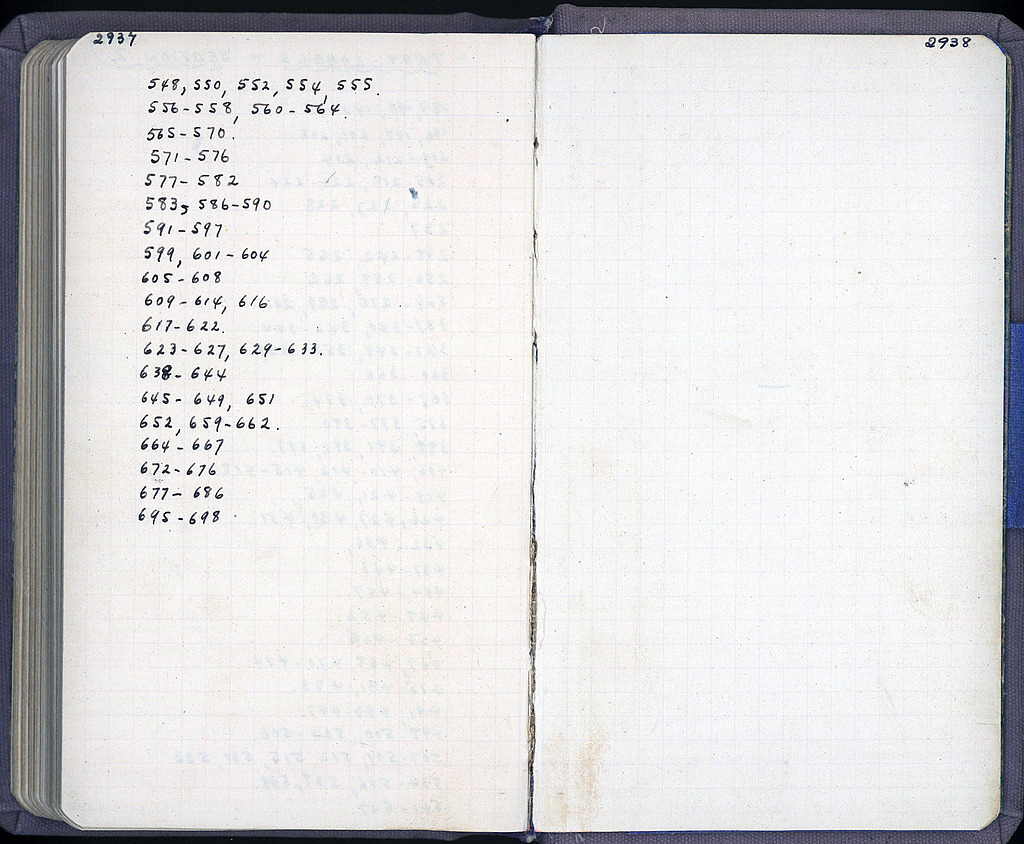 2937
548, 550, 552, 554, 555.
556-558, 560-564.
565-570.
571-576
577-582
583, 586-590
591-597
599, 601-604
605-608
609-614, 616
617-622.
623-627, 629-633.
638-644
645-649, 651
652, 659-662.
664-667
672-676
677-686
695-698
2938